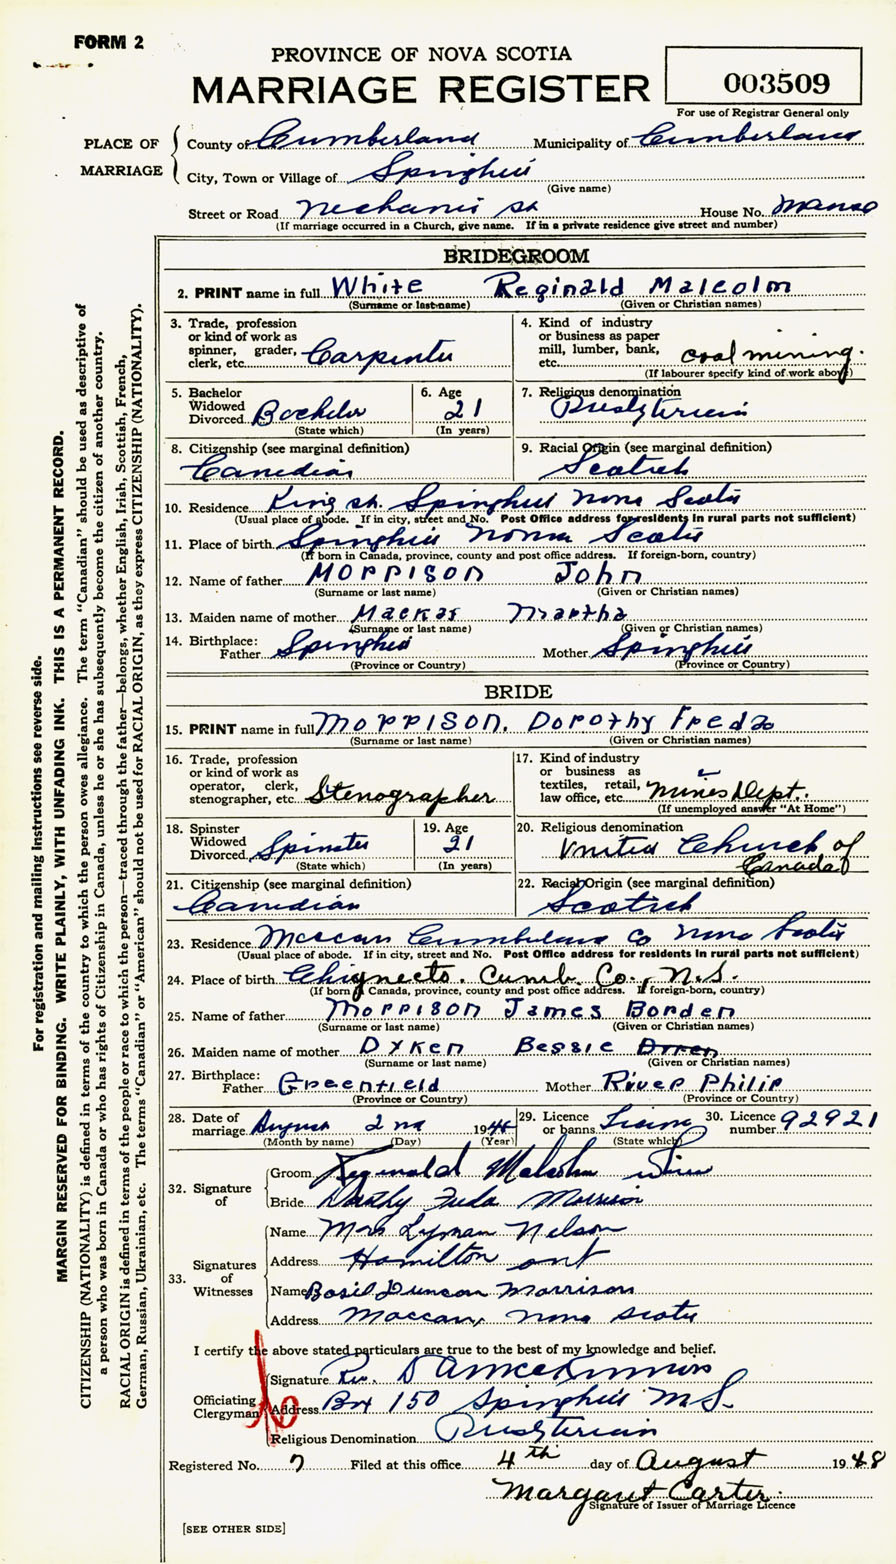 FORM 2
PROVINCE OF NOVA SCOTIA
MARRIAGE REGISTER
003509
For use of Registrar General only
PLACE OF MARRIAGE
County of Cumberland Municipality of Cumberland
City, Town or Village of Springhill
(Give name)
Street or Road Mechanic St House No. Manse
(If marriage occurred in a Church, give name. If in a private residence give street and number)
BRIDEGROOM
2. PRINT name in full White Reginald Malcolm
(Surname or last name) (Given or Christian names)
3. Trade, profession or kind of work as spinner, grader, clerk, etc. Carpenter
4. Kind of industry or business as paper mill, lumber, bank, etc. coal mining.
(If labourer specify kind of work above)
5. Bachelor Widowed Divorced Bachelor
(State which)
6. Age 21
(In years)
7. Religious denomination
Presbyterian
8. Citizenship (see marginal definition)
Canadian
9. Racial Origin (see marginal definition)
Scotch
10. Residence King St. Springhill Nova Scotia
(Usual place of abode. If in city, street and No. Post Office address for residents in rural parts not sufficient)
11. Place of birth Springhill Nova Scotia
(If born in Canada, province, county and post office address. If foreign-born, country)
12. Name of father MORRISON John
(Surname or last name) (Given or Christian names)
13. Maiden name of mother Mackay Martha
(Surname or last name) (Given or Christian names)
14. Birthplace:
Father Springhill Mother Springhill
(Province or Country) (Province or Country)
BRIDE
15. PRINT name in full MORRISON. Dorothy Freda
(Surname or last name) (Given or Christian names)
16. Trade, profession or kind of work as operator, clerk, stenographer, etc. Stenographer
17. Kind of industry or business as textiles, retail, law office, etc. Mines Dept.
(If unemployed answer "At Home")
18. Spinster Widowed Divorced Spinster
(State which)
19. Age 21
(In years)
20. Religious denomination
United Church of Canada
21. Citizenship (see marginal definition)
Canadian
22. Racial Origin (see marginal definition)
Scotch
23. Residence Maccan Cumberland Co Nova Scotia
(Usual place of abode. If in city, street and No. Post Office address for residents in rural parts not sufficient)
24. Place of birth Chignecto, Cumb. Co., N.S.
(If born in Canada, province, county and post office address. If foreign-born, country)
25. Name of father Morrison James Borden
(Surname or last name) (Given or Christian names)
26. Maiden name of mother Dyken Bessie
(Surname or last name) (Given or Christian names)
27. Birthplace:
Father Greenfield Mother River Philip
(Province or Country) (Province or Country)
28. Date of marriage August 2nd 1948
(Month by name) (Day) (Year)
29. Licence or banns License
(State which)
30. Licence number 92921
32. Signature of
Groom Reginald Malcolm White
Bride Dorothy Freda Morrison
33. Signatures of Witnesses
Name Mrs Lyman Nelson
Address Hamilton Ont
Name Basil Duncan Morrison
Address Maccan, Nova Scotia
I certify the above stated particulars are true to the best of my knowledge and belief.
Officiating Clergyman
Signature Rev. D A McKinnon
Address Box 150 Springhill N.S.
Religious Denomination Presbyterian
Registered No. 7 Filed at this office 4th day of August 1948
Margaret Carter
Signature of Issuer of Marriage Licence
[SEE OTHER SIDE]
For registration and mailing instructions see reverse side.
MARGIN RESERVED FOR BINDING. WRITE PLAINLY, WITH UNFADING INK. THIS IS A PERMANENT RECORD.
CITIZENSHIP (NATIONALITY) is defined in terms of the country to which the person owes allegiance. The term "Canadian" should be used as descriptive of
a person who was born in Canada or who has rights of Citizenship in Canada, unless he or she has subsequently become the citizen of another country.
RACIAL ORIGIN is defined in terms of the people or race to which the person—traced through the father—belongs, whether English, Irish, Scottish, French,
German, Russian, Ukrainian, etc. The terms "Canadian" or "American" should not be used for RACIAL ORIGIN, as they express CITIZENSHIP (NATIONALITY).